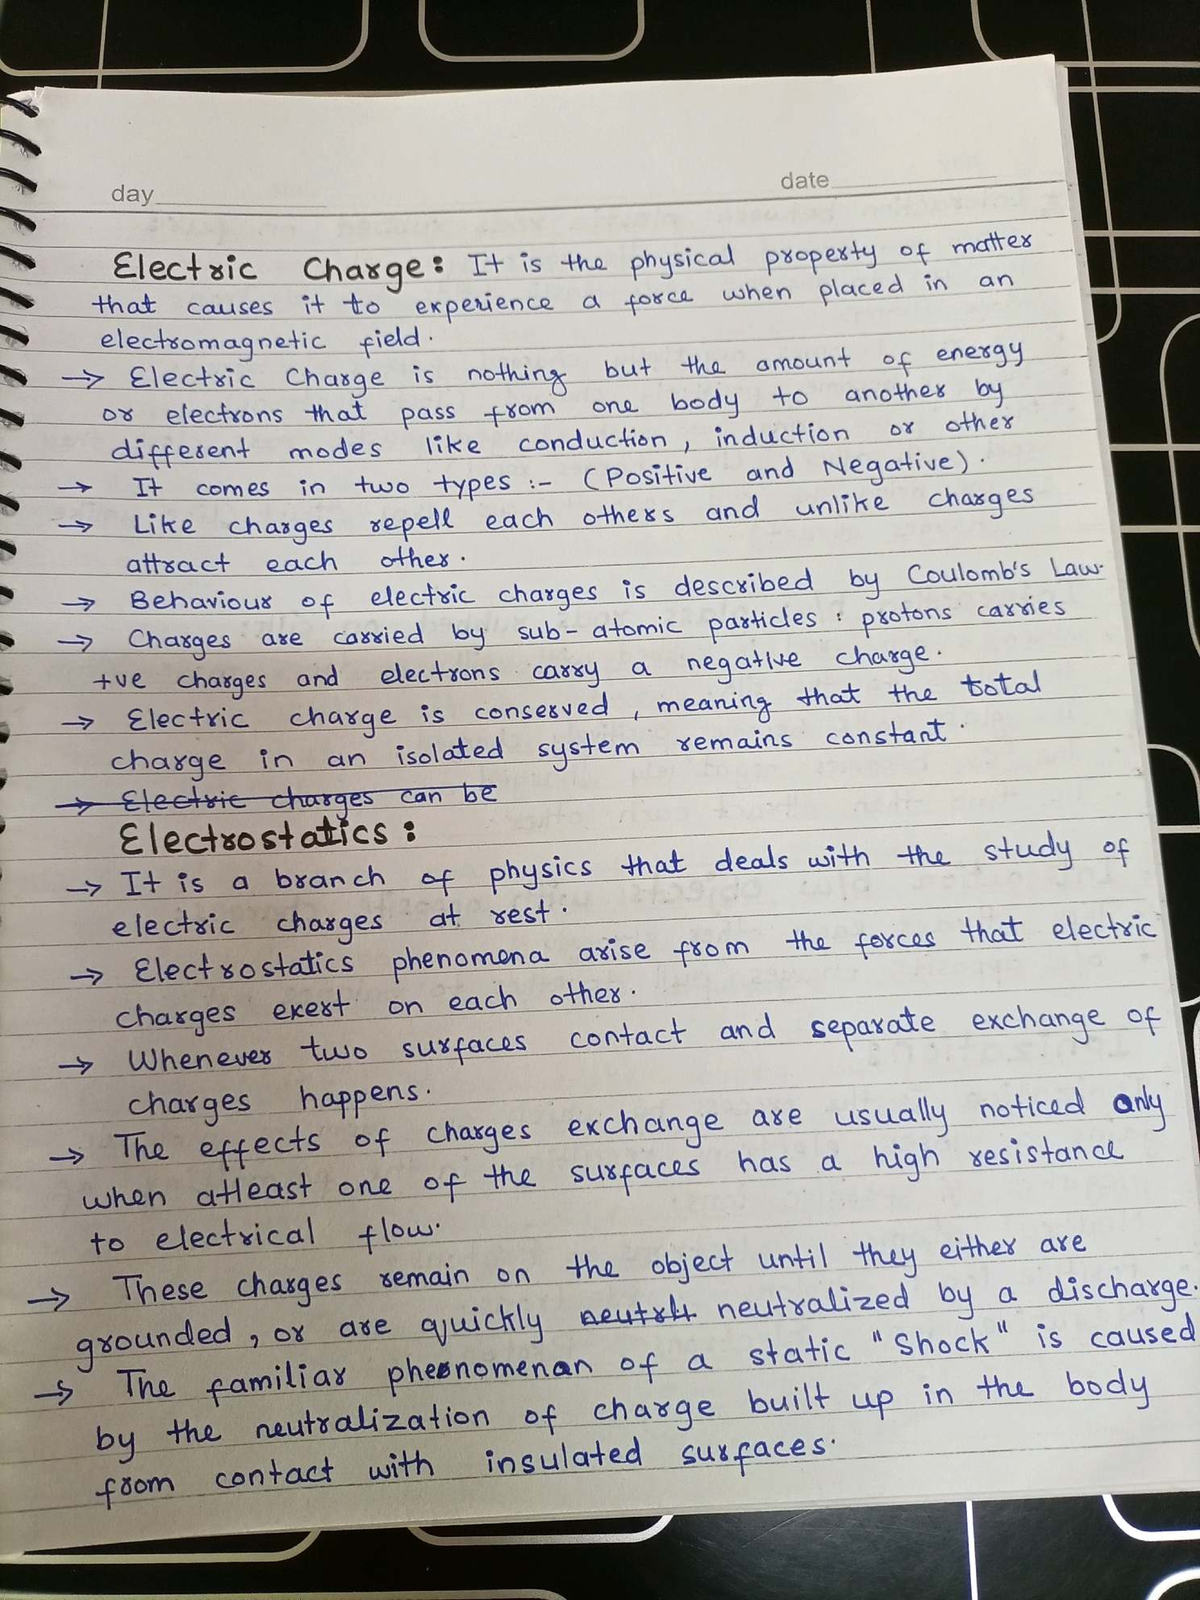 day
date
Electric Charge: It is the physical property of matter
that causes it to experience a force when placed in an
electromagnetic field.
→ Electric Charge is nothing but the amount of energy
or electrons that pass from one body to another by
different modes like conduction, induction or other
→ It comes in two types :- (Positive and Negative).
→ Like charges repell each others and unlike charges
attract each other.
→ Behaviour of electric charges is described by Coulomb's Law.
→ Charges are carried by sub-atomic particles : protons carries
+ve charges and electrons carry a negative charge.
→ Electric charge is conserved, meaning that the total
charge in an isolated system remains constant.
→ Electric charges can be
Electrostatics:
→ It is a branch of physics that deals with the study of
electric charges at rest.
→ Electrostatics phenomena arise from the forces that electric
charges exert on each other.
→ Whenever two surfaces contact and separate exchange of
charges happens.
→ The effects of charges exchange are usually noticed only
when atleast one of the surfaces has a high resistance
to electrical flow.
→ These charges remain on the object until they either are
grounded, or are quickly neutrli neutralized by a discharge.
→ The familiar phenomenan of a static "Shock" is caused
by the neutralization of charge built up in the body
from contact with insulated surfaces.